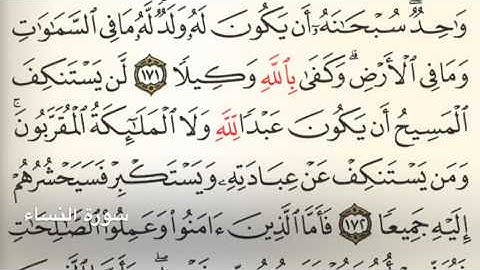 وَٰحِدٌ ۖ سُبْحَـٰنَهُۥٓ أَن يَكُونَ لَهُۥ وَلَدٌ ۘ لَّهُۥ مَا فِى ٱلسَّمَـٰوَٰتِ
وَمَا فِى ٱلْأَرْضِ ۗ وَكَفَىٰ بِٱللَّهِ وَكِيلًا ١٧١ لَّن يَسْتَنكِفَ
ٱلْمَسِيحُ أَن يَكُونَ عَبْدًا لِّلَّهِ وَلَا ٱلْمَلَـٰٓئِكَةُ ٱلْمُقَرَّبُونَ ۚ
وَمَن يَسْتَنكِفْ عَنْ عِبَادَتِهِۦ وَيَسْتَكْبِرْ فَسَيَحْشُرُهُمْ
إِلَيْهِ جَمِيعًا ١٧٢ فَأَمَّا ٱلَّذِينَ ءَامَنُوا۟ وَعَمِلُوا۟ ٱلصَّـٰلِحَـٰتِ
سورة النساء